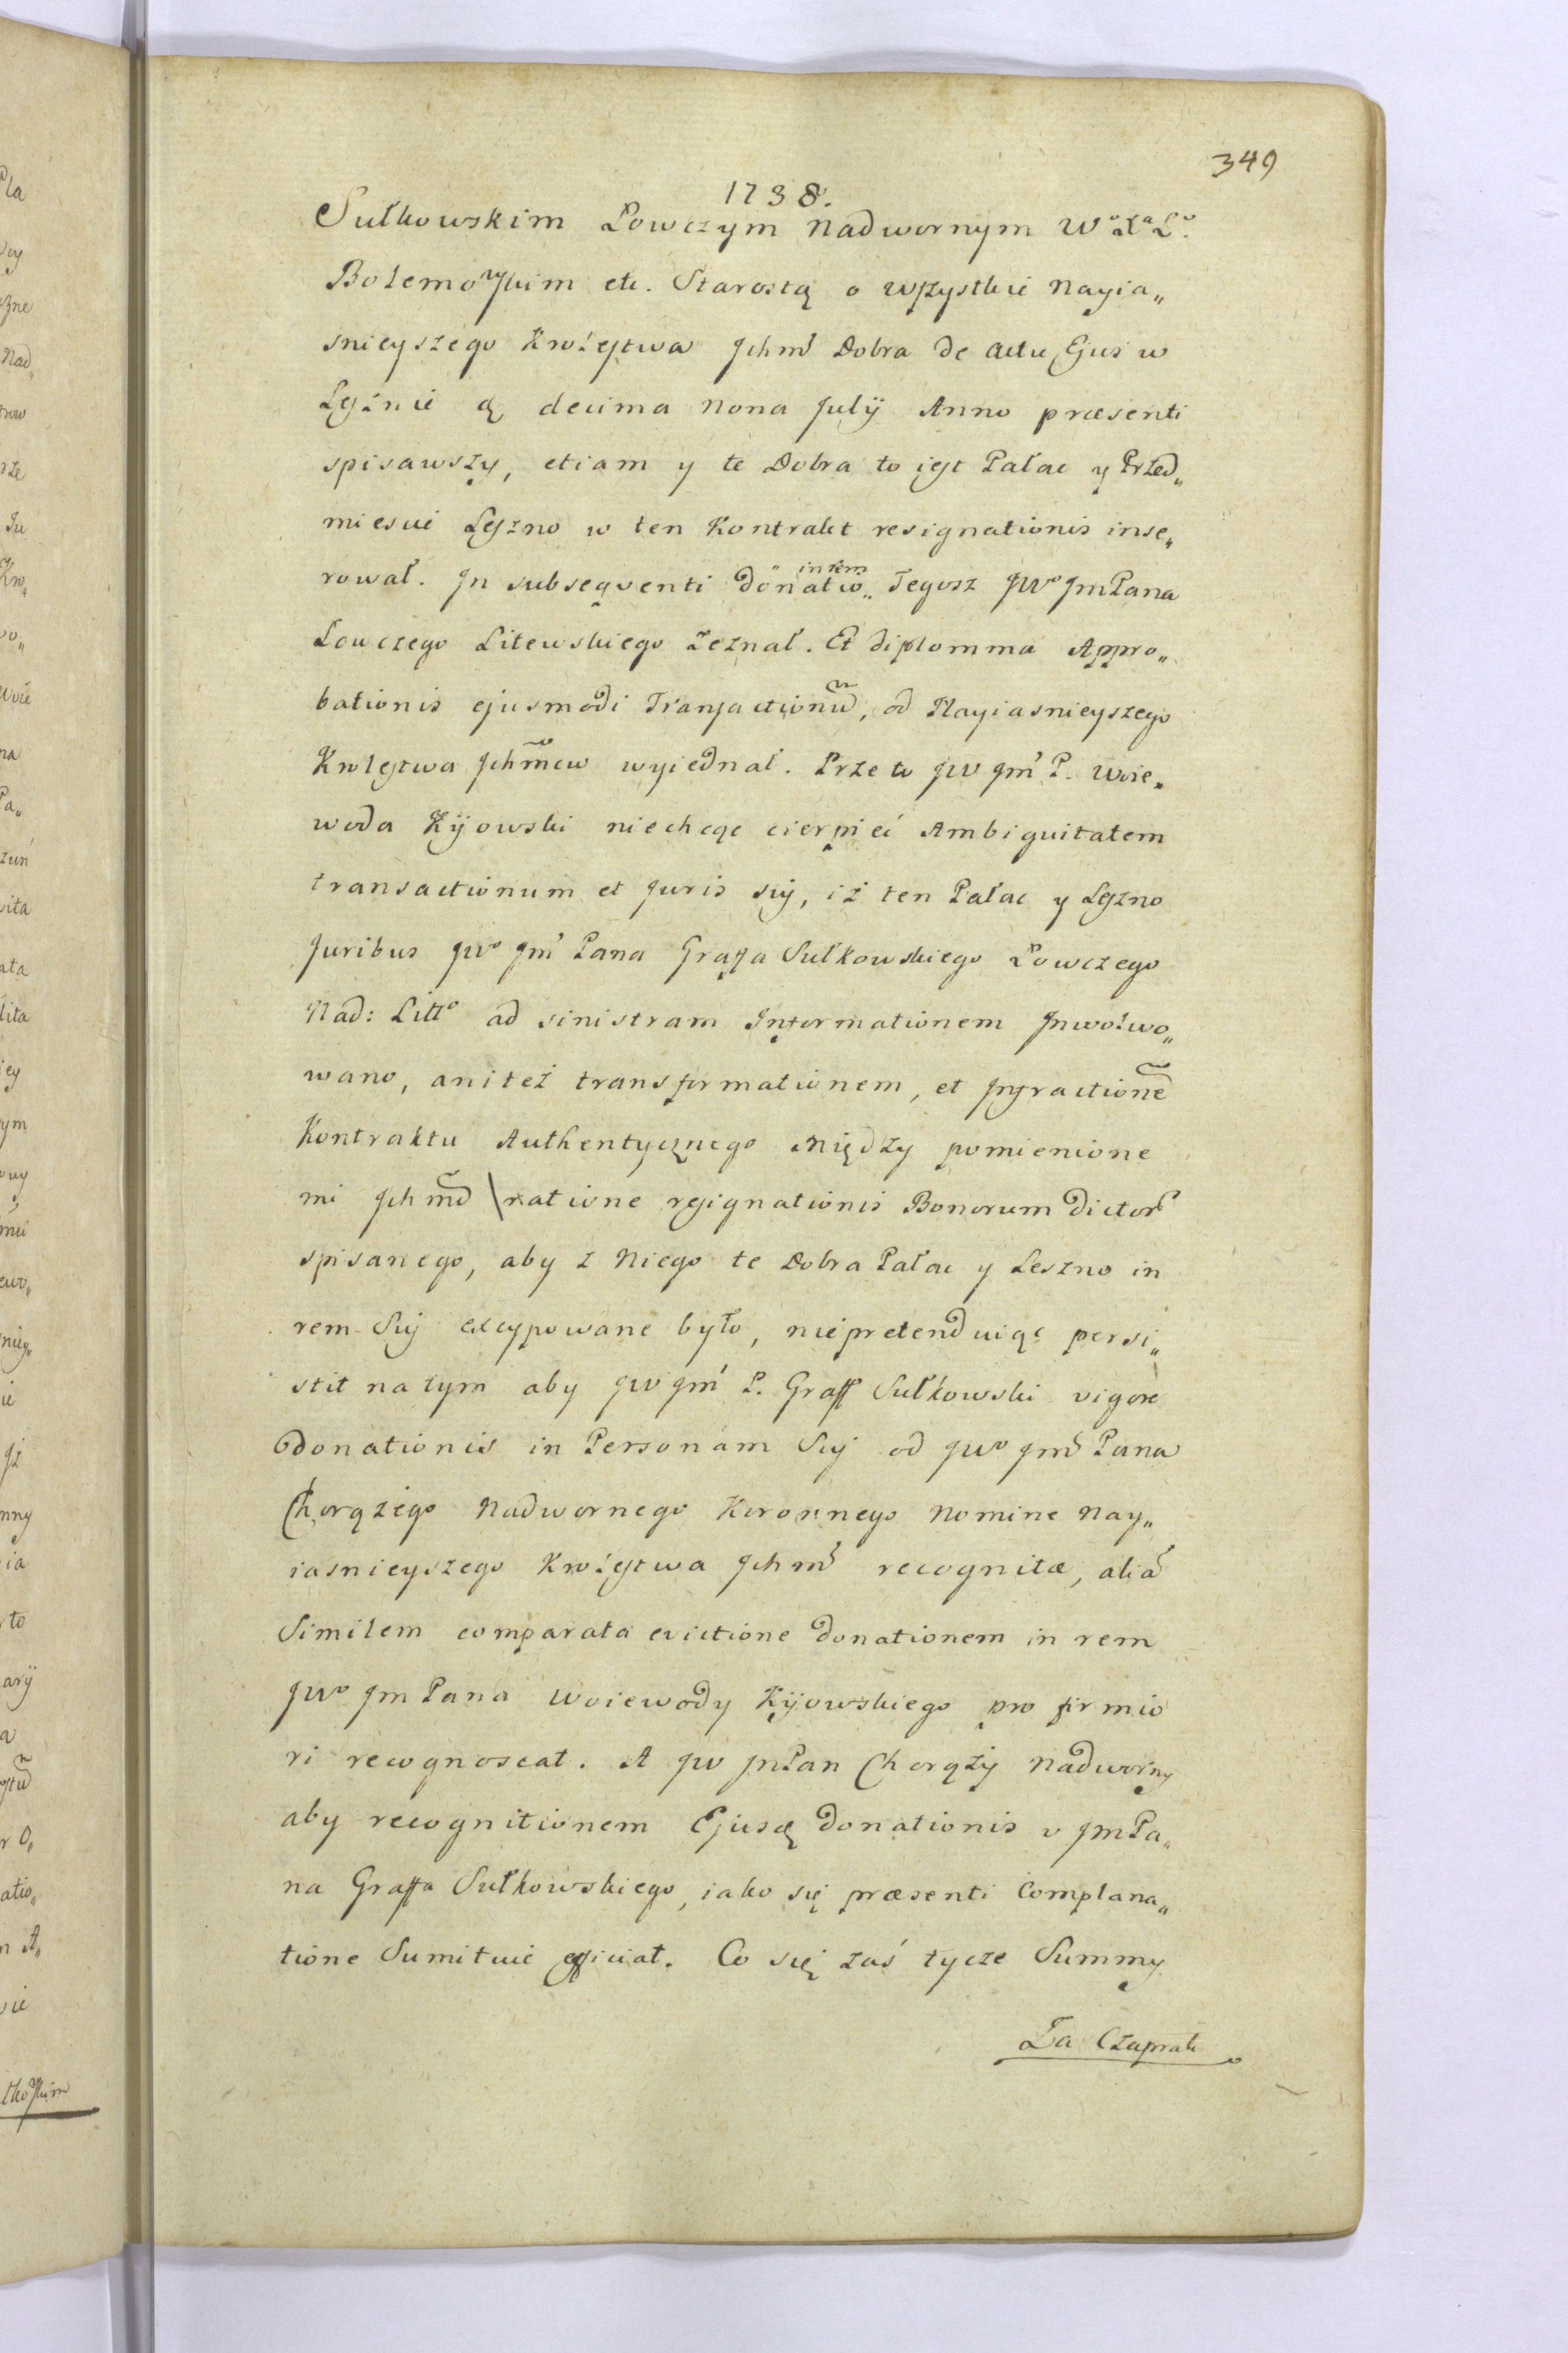 349
1738.
Sułkowskim Łowczym Nadwornym Wº Xª Lº.
Bolemoskim etc. Starostą o wszystkie Nayia„
snieyszego Krolestwa Jchmć Dobra de actu Ejus w
Lesznie ą decima nona Julÿ Anno præsenti
spisawszy, etiam y te Dobra to iest Pałac y Przed„
miescie Leszno w ten Kontrakt resignationis inse„
rował. Jn subsequenti donatio„ intem Tegosz JWº JmPana
Łowczego Litewskiego zeznał. Et diplomma Appro„
bationis ejusmodi Transactionũ, od Nayiasnieyszego
Krolestwa Jchm̃cw wyiednał. Przeto JW Jmć P. Woie„
woda Kÿowski niechcąc cierpieć Ambiguitatem
transactionum et Juris sui, iż ten Pałac y Leszno
Juribus JWº Jmć Pana Graffa Sułkowskiego Łowczego
Nad: Littº ad sinistram Informationem Jnwolwo„
wano, ani też transformationem, et Jnfractionẽ
Kontraktu Authentycznego Między pomienione
mi Jchm̃ć ratione resignationis Bonorum dictor
spisanego, aby z Niego te Dobra Pałac y Leszno in
rem Sui excypowane było, niepretenduiąc persi„
stit na tym aby JW Jmć P. Graff Sułkowski vigore
donationis in Personam Sui od JWº Jmć Pana
Chorążego Nadwornego Koronnego Nomine Nay„
iasnieyszego Krolestwa Jchmć recognitæ, aliã
Similem comparata evictione donationem in rem
JWº JmPana Woiewody Kÿowskiego pro firmio
ri recognoscat. A JW JmPan Chorąży Nadworny
aby recognitionem Ejusdę donationis v JmPa„
na Graffa Sułkowskiego, iako się præsenti Complana„
tione Sumituie efficiat. Co się zaś tycze Summy
Za Czaprak